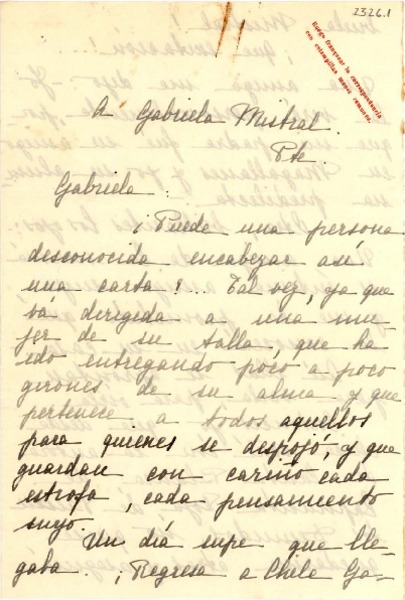 2326.1
Ruégo franquear la correspondencia
con estampillas menos comunes.
A Gabriela Mistral.
Pte.
Gabriela:
¡Puede una persona
desconocida encabezar así
una carta?... Tal vez, ya que
vá dirigida a una mu-
jer de su talla, que ha
ido entregando poco a poco
girones de su alma y que
pertenece a todos aquellos
para quienes se despojó, y que
guardan con cariño cada
estrofa, cada pensamiento
suyo.
Un día supe que lle-
gaba. ¡Regresa a Chile Ga-